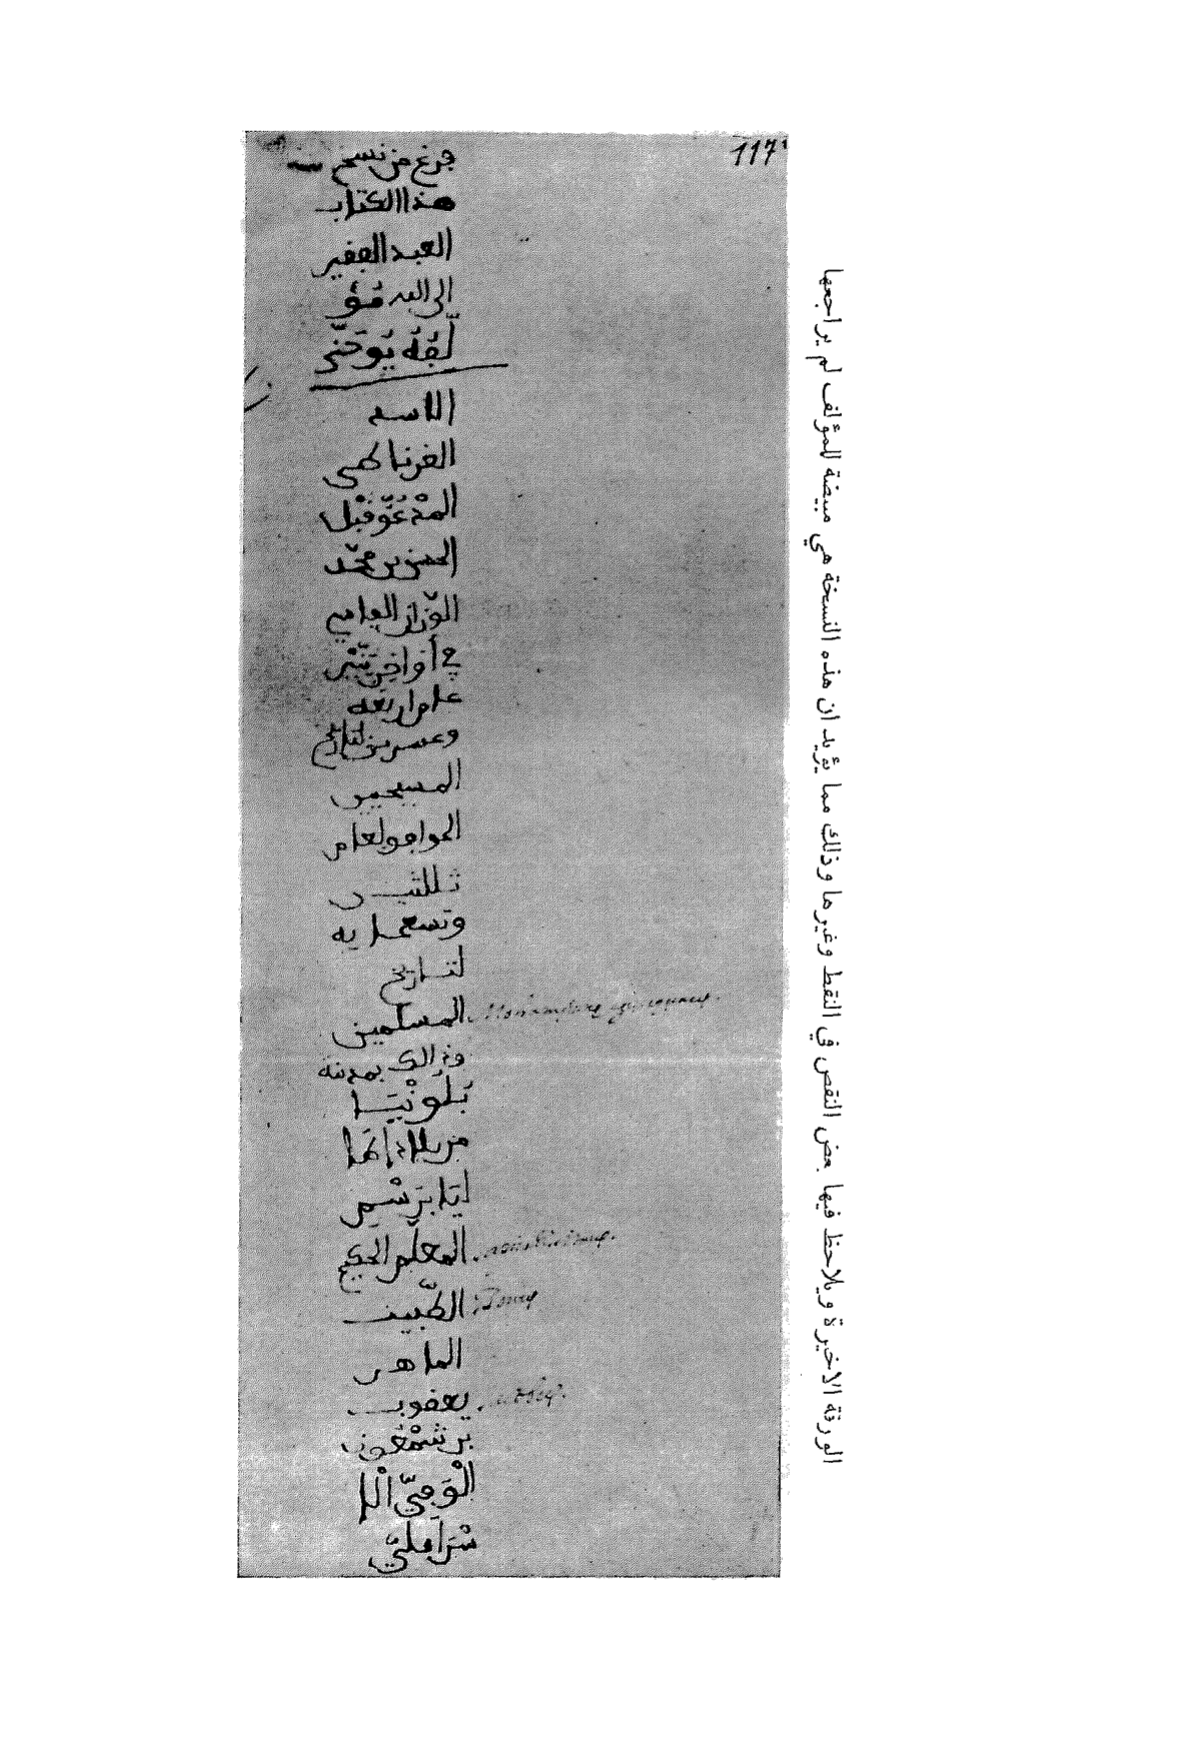 117
فرغ من نسخ
هذا الكتاب
العبد الفقير
الى الله مؤ
لّفه يوحنّى
الاسد
الغرناطي
المدعوّ قبل
الحسن بن محمّد
الوزّان الفاسي
في أواخر ينّير
عام اربعة
وعشرين لتاريخ
المسيحيين
الموافق لعام
ثلثين
وتسعماية
لتاريخ
المسلمين
وذالك بمدينة
بلونْيَا
من بلاد إطا
ليا برسم
المعلّم الحكيم
الطّبيب
الماهر
يعقوب
بن شمْعون
الْوَفِيّ الْا
سْرَاءِليّ
الورقة الاخيرة ويلاحظ فيها بعض النقص في النقط وغيرها وذلك مما يؤيد ان هذه النسخة هي مبيضة للمؤلف لم يراجعها